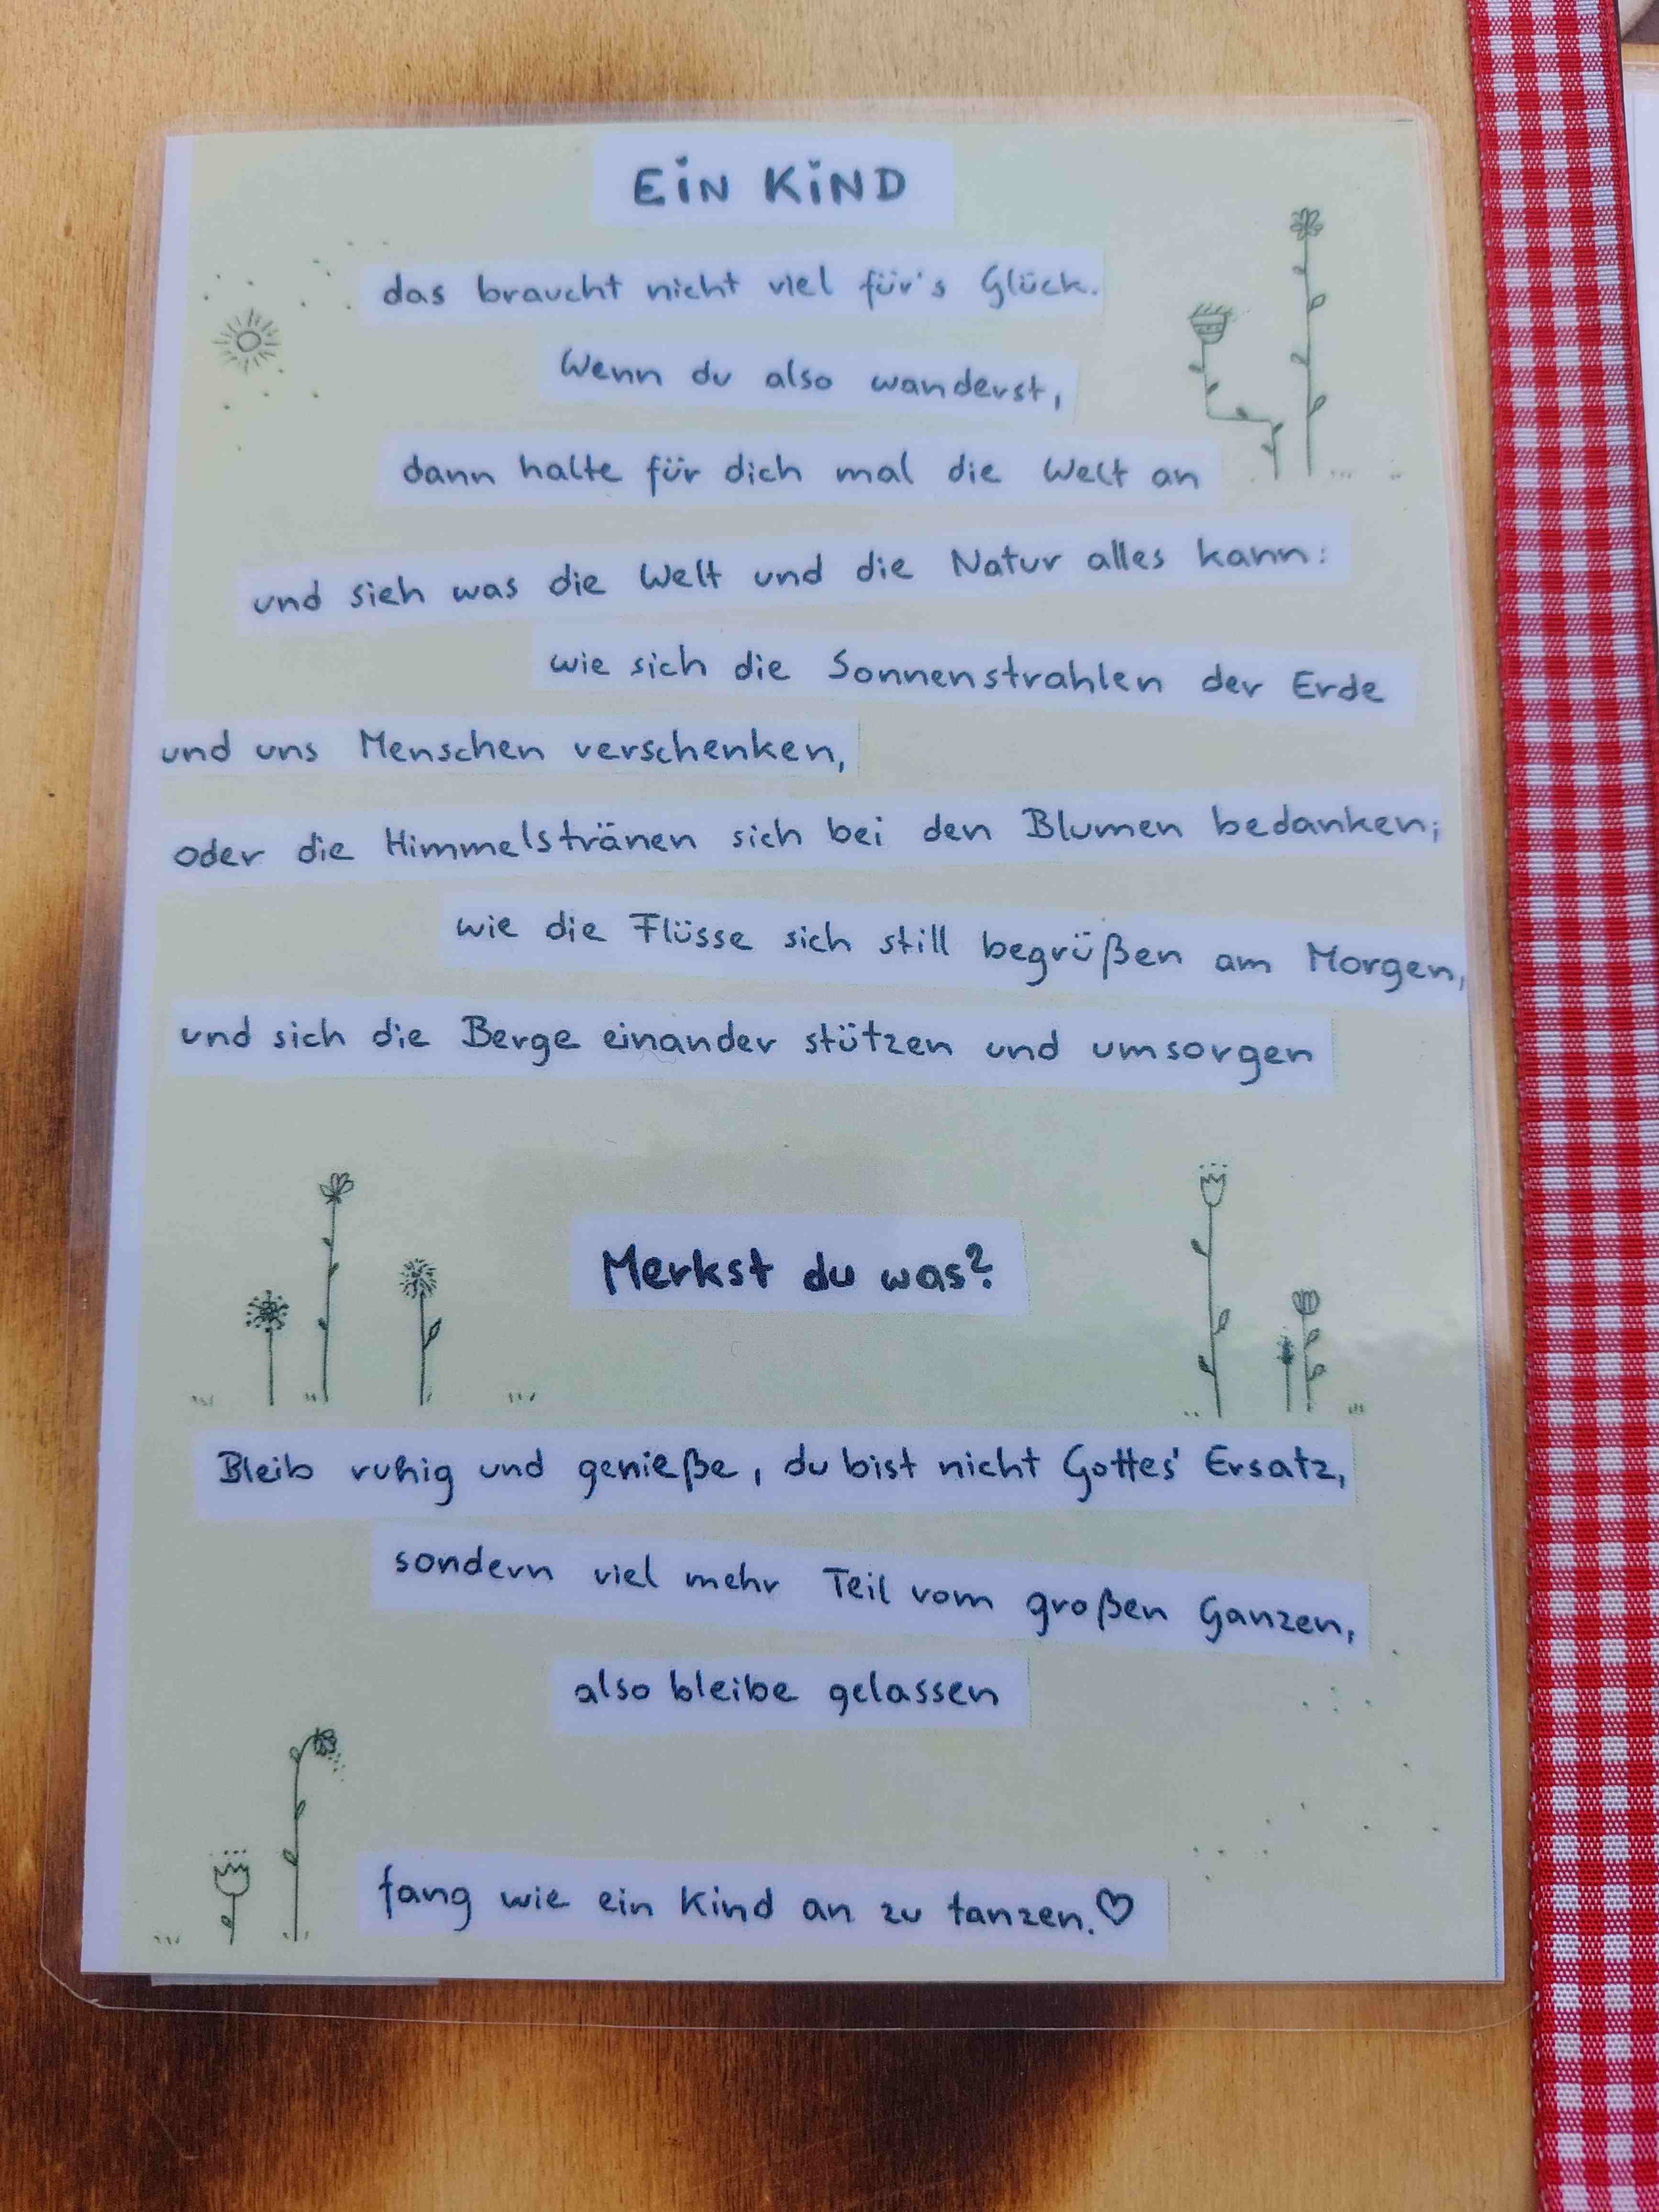 EiN KiND
das braucht nicht viel für's Glück.
Wenn du also wanderst,
dann halte für dich mal die Welt an
und sieh was die Welt und die Natur alles kann:
wie sich die Sonnenstrahlen der Erde
und uns Menschen verschenken,
oder die Himmelstränen sich bei den Blumen bedanken;
wie die Flüsse sich still begrüßen am Morgen,
und sich die Berge einander stützen und umsorgen
Merkst du was?
Bleib ruhig und genieße, du bist nicht Gottes' Ersatz,
sondern viel mehr Teil vom großen Ganzen,
also bleibe gelassen
fang wie ein Kind an zu tanzen.♡